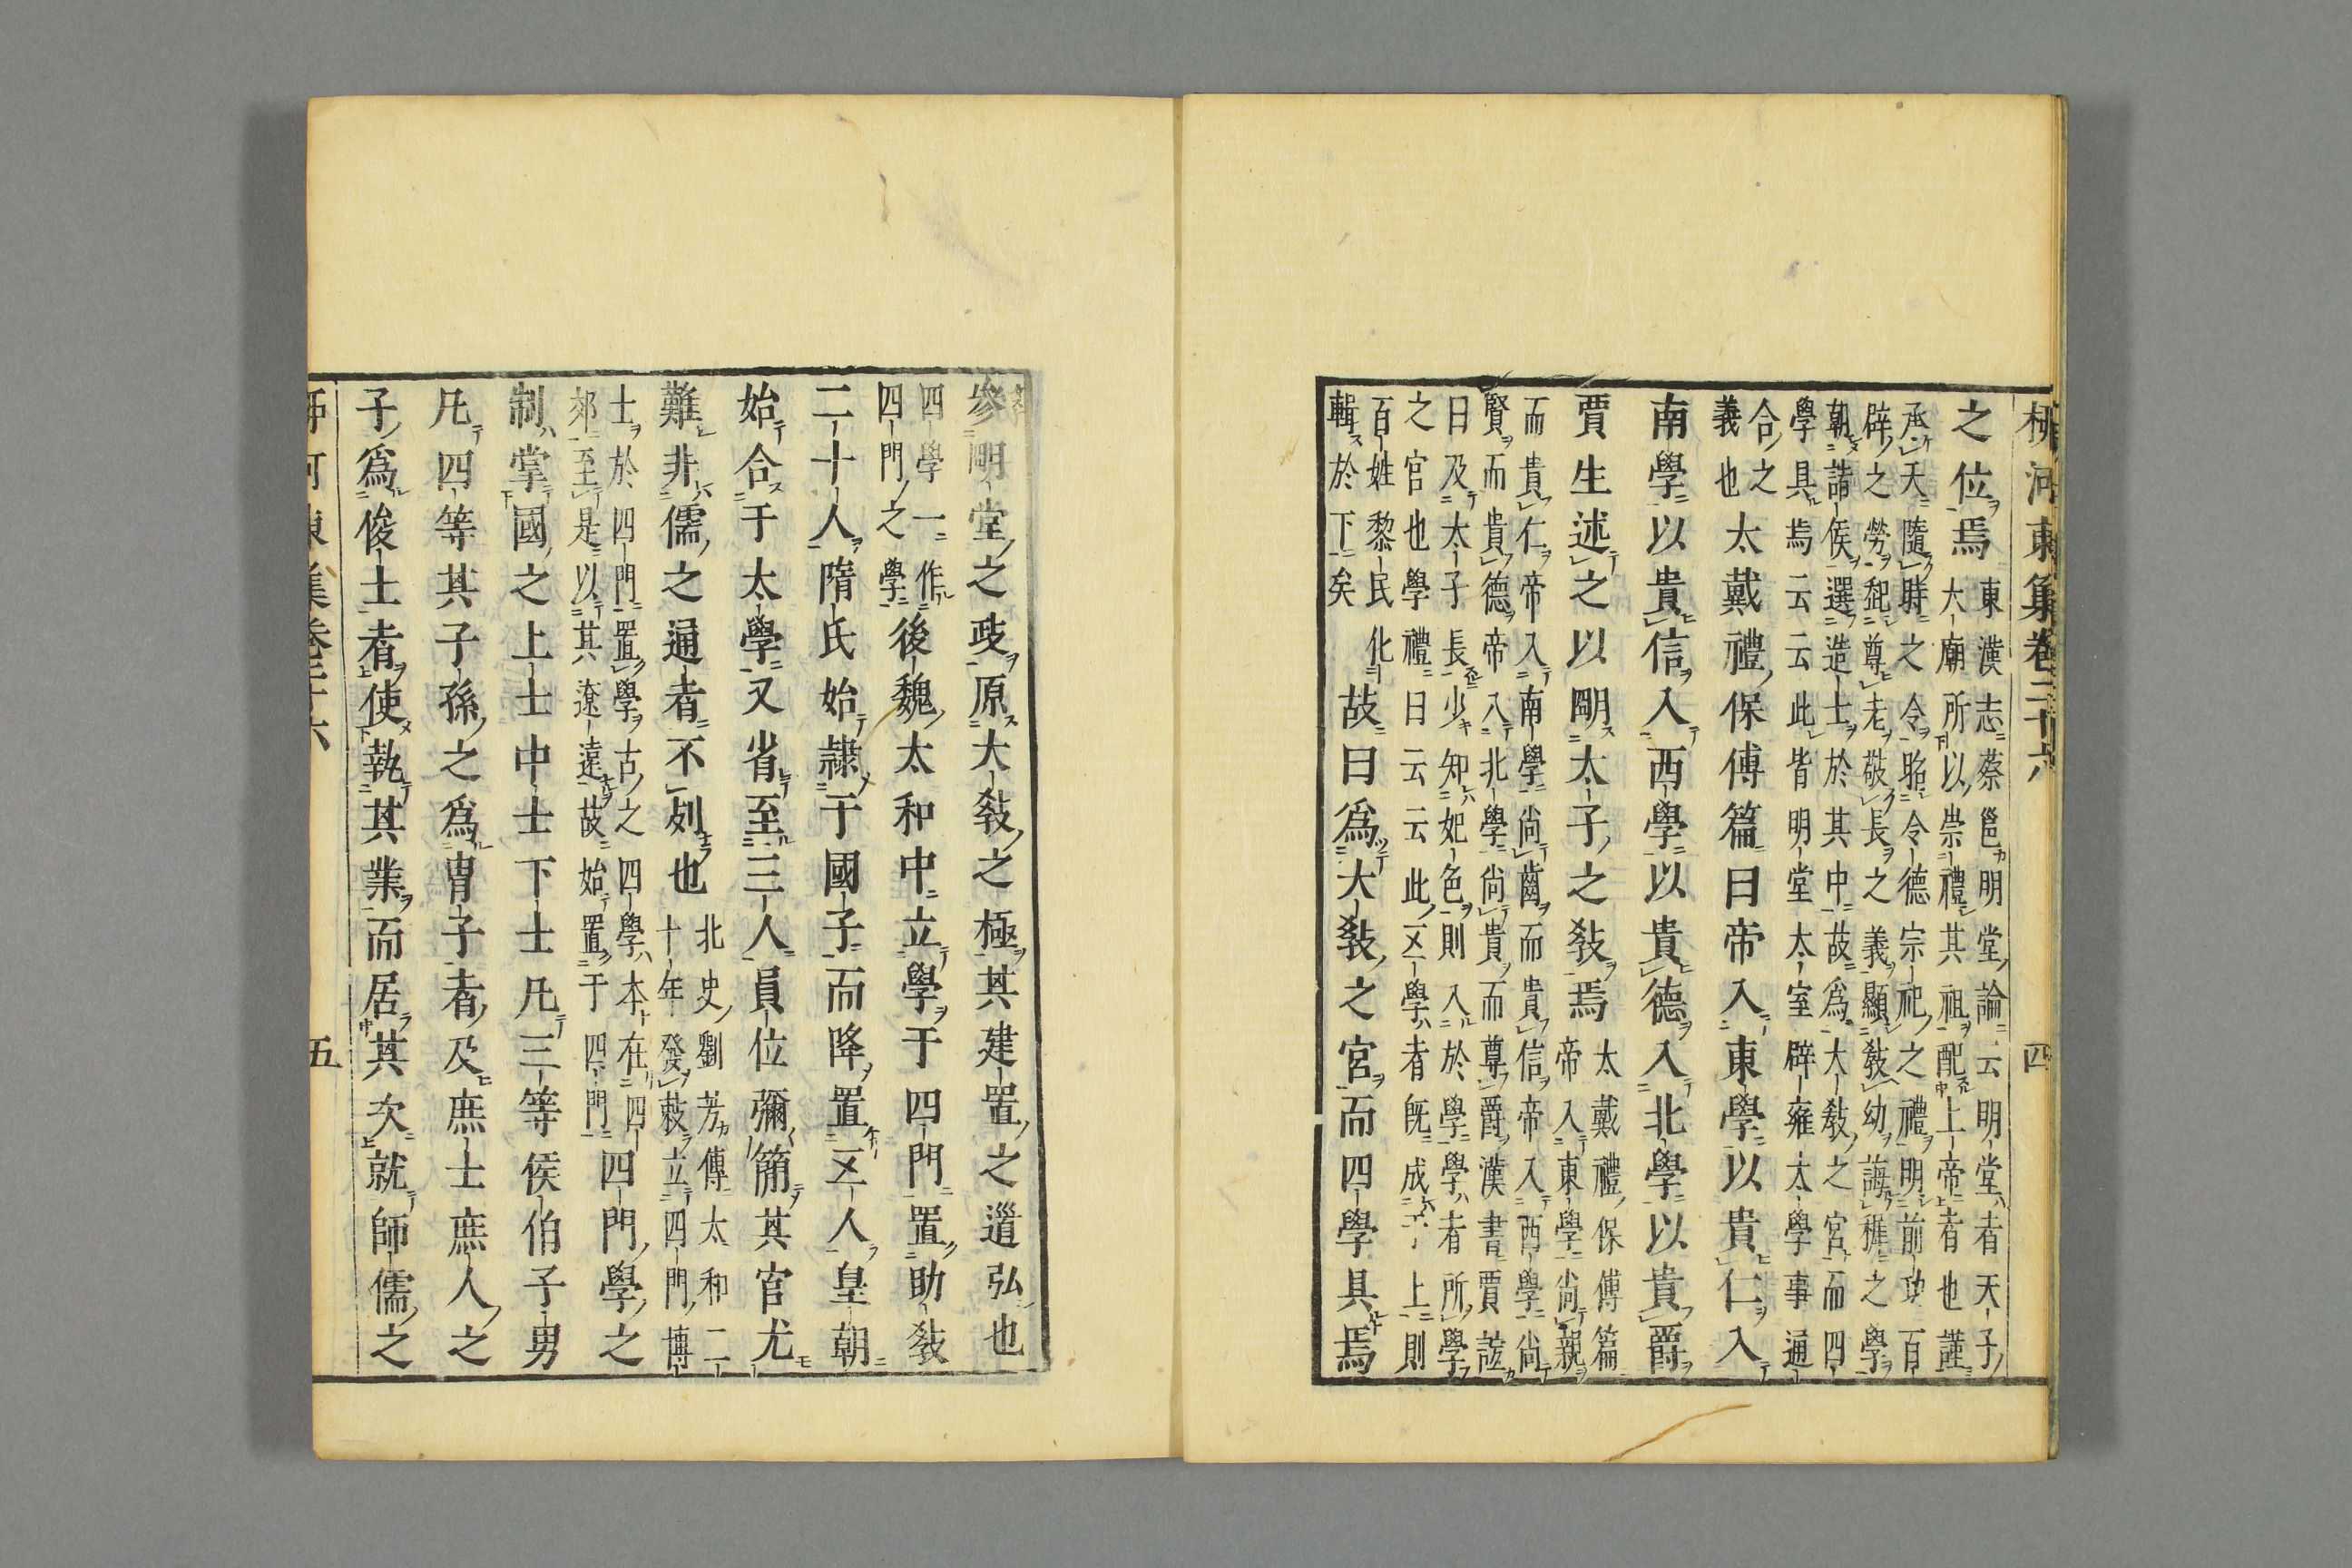 柳河東集卷二十六 四
之位焉
東漢志蔡邕明堂論云明堂者天子
大廟所以崇禮其祖配上帝者也謹
承天隨時之令昭令德宗祀之禮明前功百
辟之勞起尊老敬長之義顯敎幼誨穉之學
朝諸侯選造士於其中故爲大敎之宮而四
學具焉云云此皆明堂太室辟雍太學事通
合之
義也
太戴禮保傅篇曰帝入東學以貴仁入
南學以貴信入西學以貴德入北學以貴爵
賈生述之以明太子之敎焉
太戴禮保傅篇
帝入東學尙親
而貴仁帝入南學尙齒而貴信帝入西學尙
賢而貴德帝入北學尙貴而尊爵漢書賈誼
曰及太子長少知妃色則入於學學者所學
之官也學禮曰云云此五學者旣成於上則
百姓黎民化
輯於下矣
故曰爲大敎之宮而四學具焉
參明堂之政原大敎之極其建置之道弘也
四學一作
四門之學
後魏太和中立學于四門置助敎
二十人隋氏始隸于國子而降置五人皇朝
始合于太學又省至三人員位彌簡其官尤
難非儒之通者不列也
北史劉芳傳太和二
十年發敕立四門博
士於四門置學古之四學本在四
郊至是以其遼遠故始置于四門
四門學之
制掌國之上士中士下士凡三等侯伯子男
凡四等其子孫之爲胄子者及庶士庶人之
子爲俊士者使執其業而居其次就師儒之
柳河東集卷二十六 五